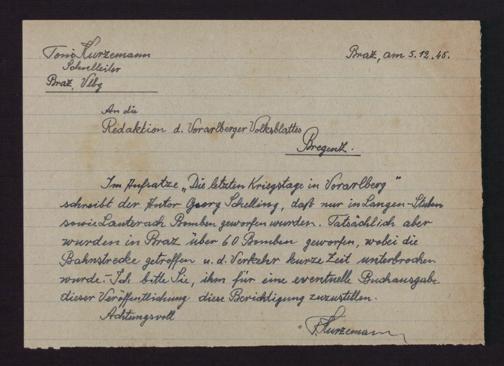 Toni Kurzemann
Schulleiter
Braz, Vlbg
Braz, am 5.12.45.
An die
Redaktion d. Vorarlberger Volksblattes
Bregenz.
Im Aufsatze „Die letzten Kriegstage in Vorarlberg"
schreibt der Autor Georg Schelling, daß nur in Langen-Stuben
sowie Lauterach Bomben geworfen wurden. Tatsächlich aber
wurden in Braz über 60 Bomben geworfen, wobei die
Bahnstrecke getroffen u. d. Verkehr kurze Zeit unterbrochen
wurde. – Ich bitte Sie, ihm für eine eventuelle Buchausgabe
dieser Veröffentlichung diese Berichtigung zuzustellen.
Achtungsvoll
T. Kurzemann